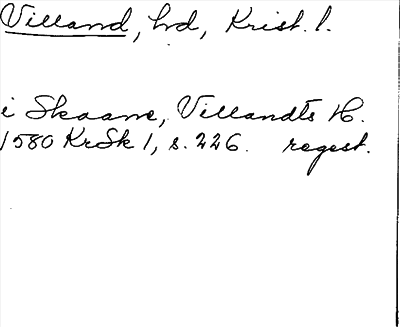 Villand, hd, Krist. l.
i Skaane, Villandts H.
1580 KrSk 1, s. 226. regest.